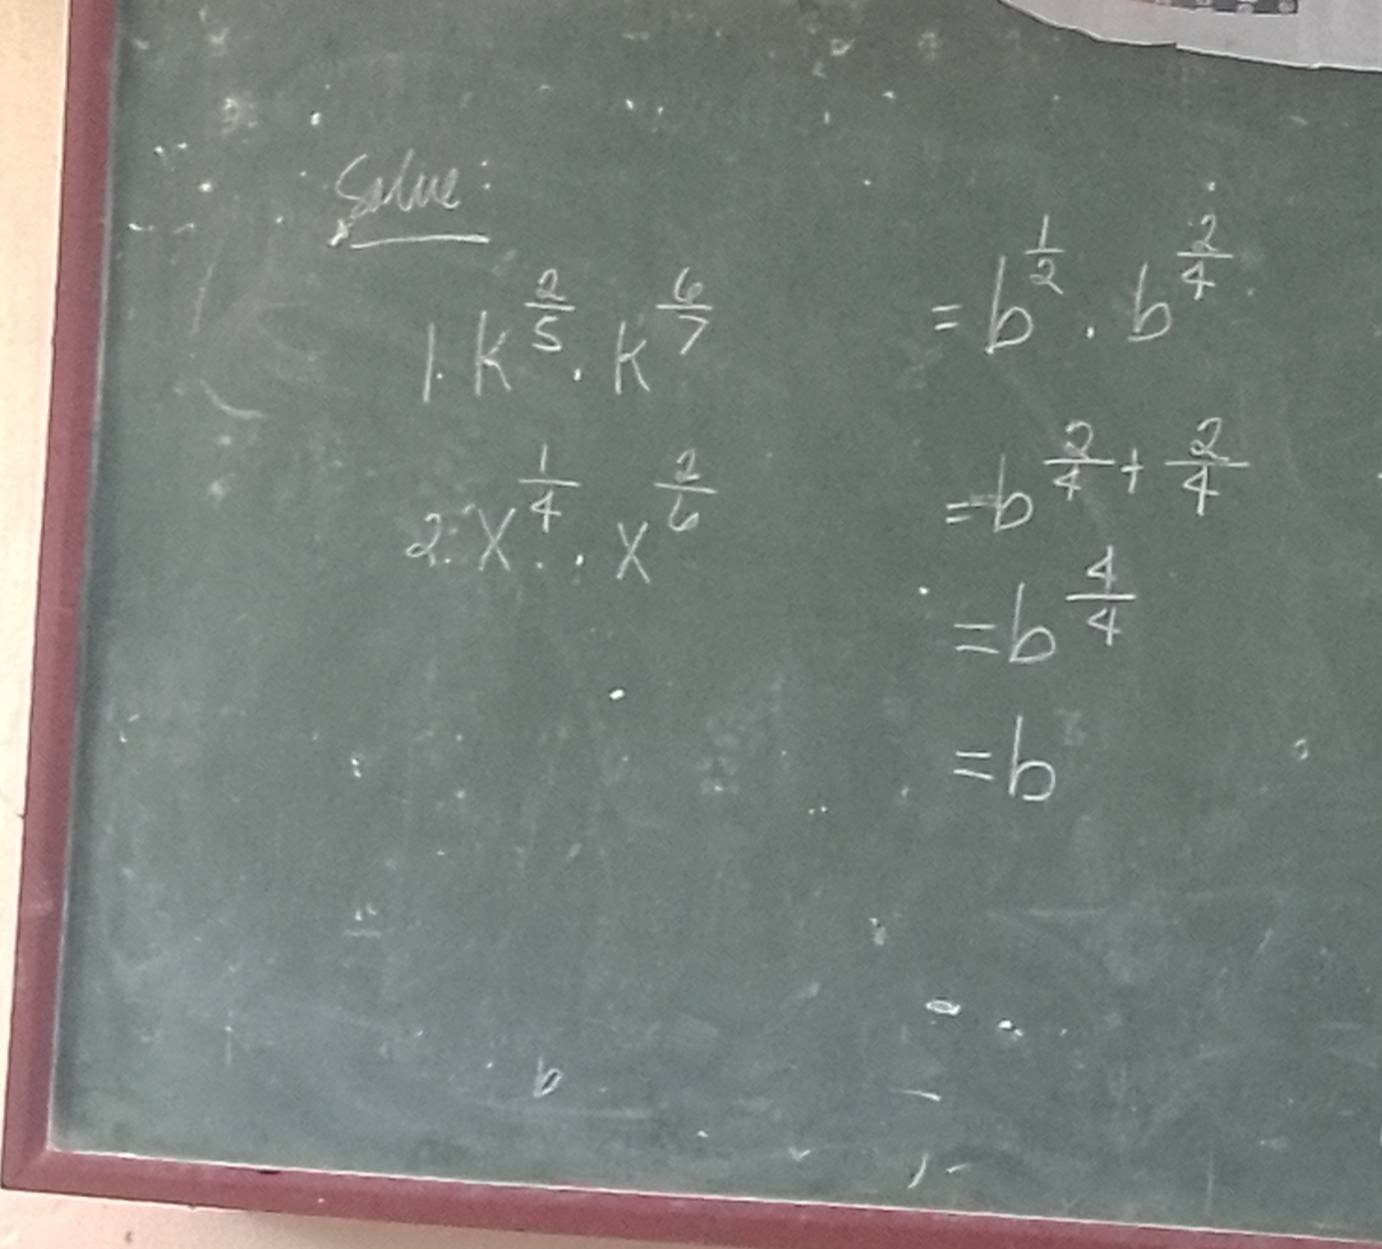 Solve:
1. k^(2/5) . k^(6/7)
2. x^(1/4) . x^(2/6)
= b^(1/2) . b^(2/4)
= b^(2/4 + 2/4)
= b^(4/4)
= b
b